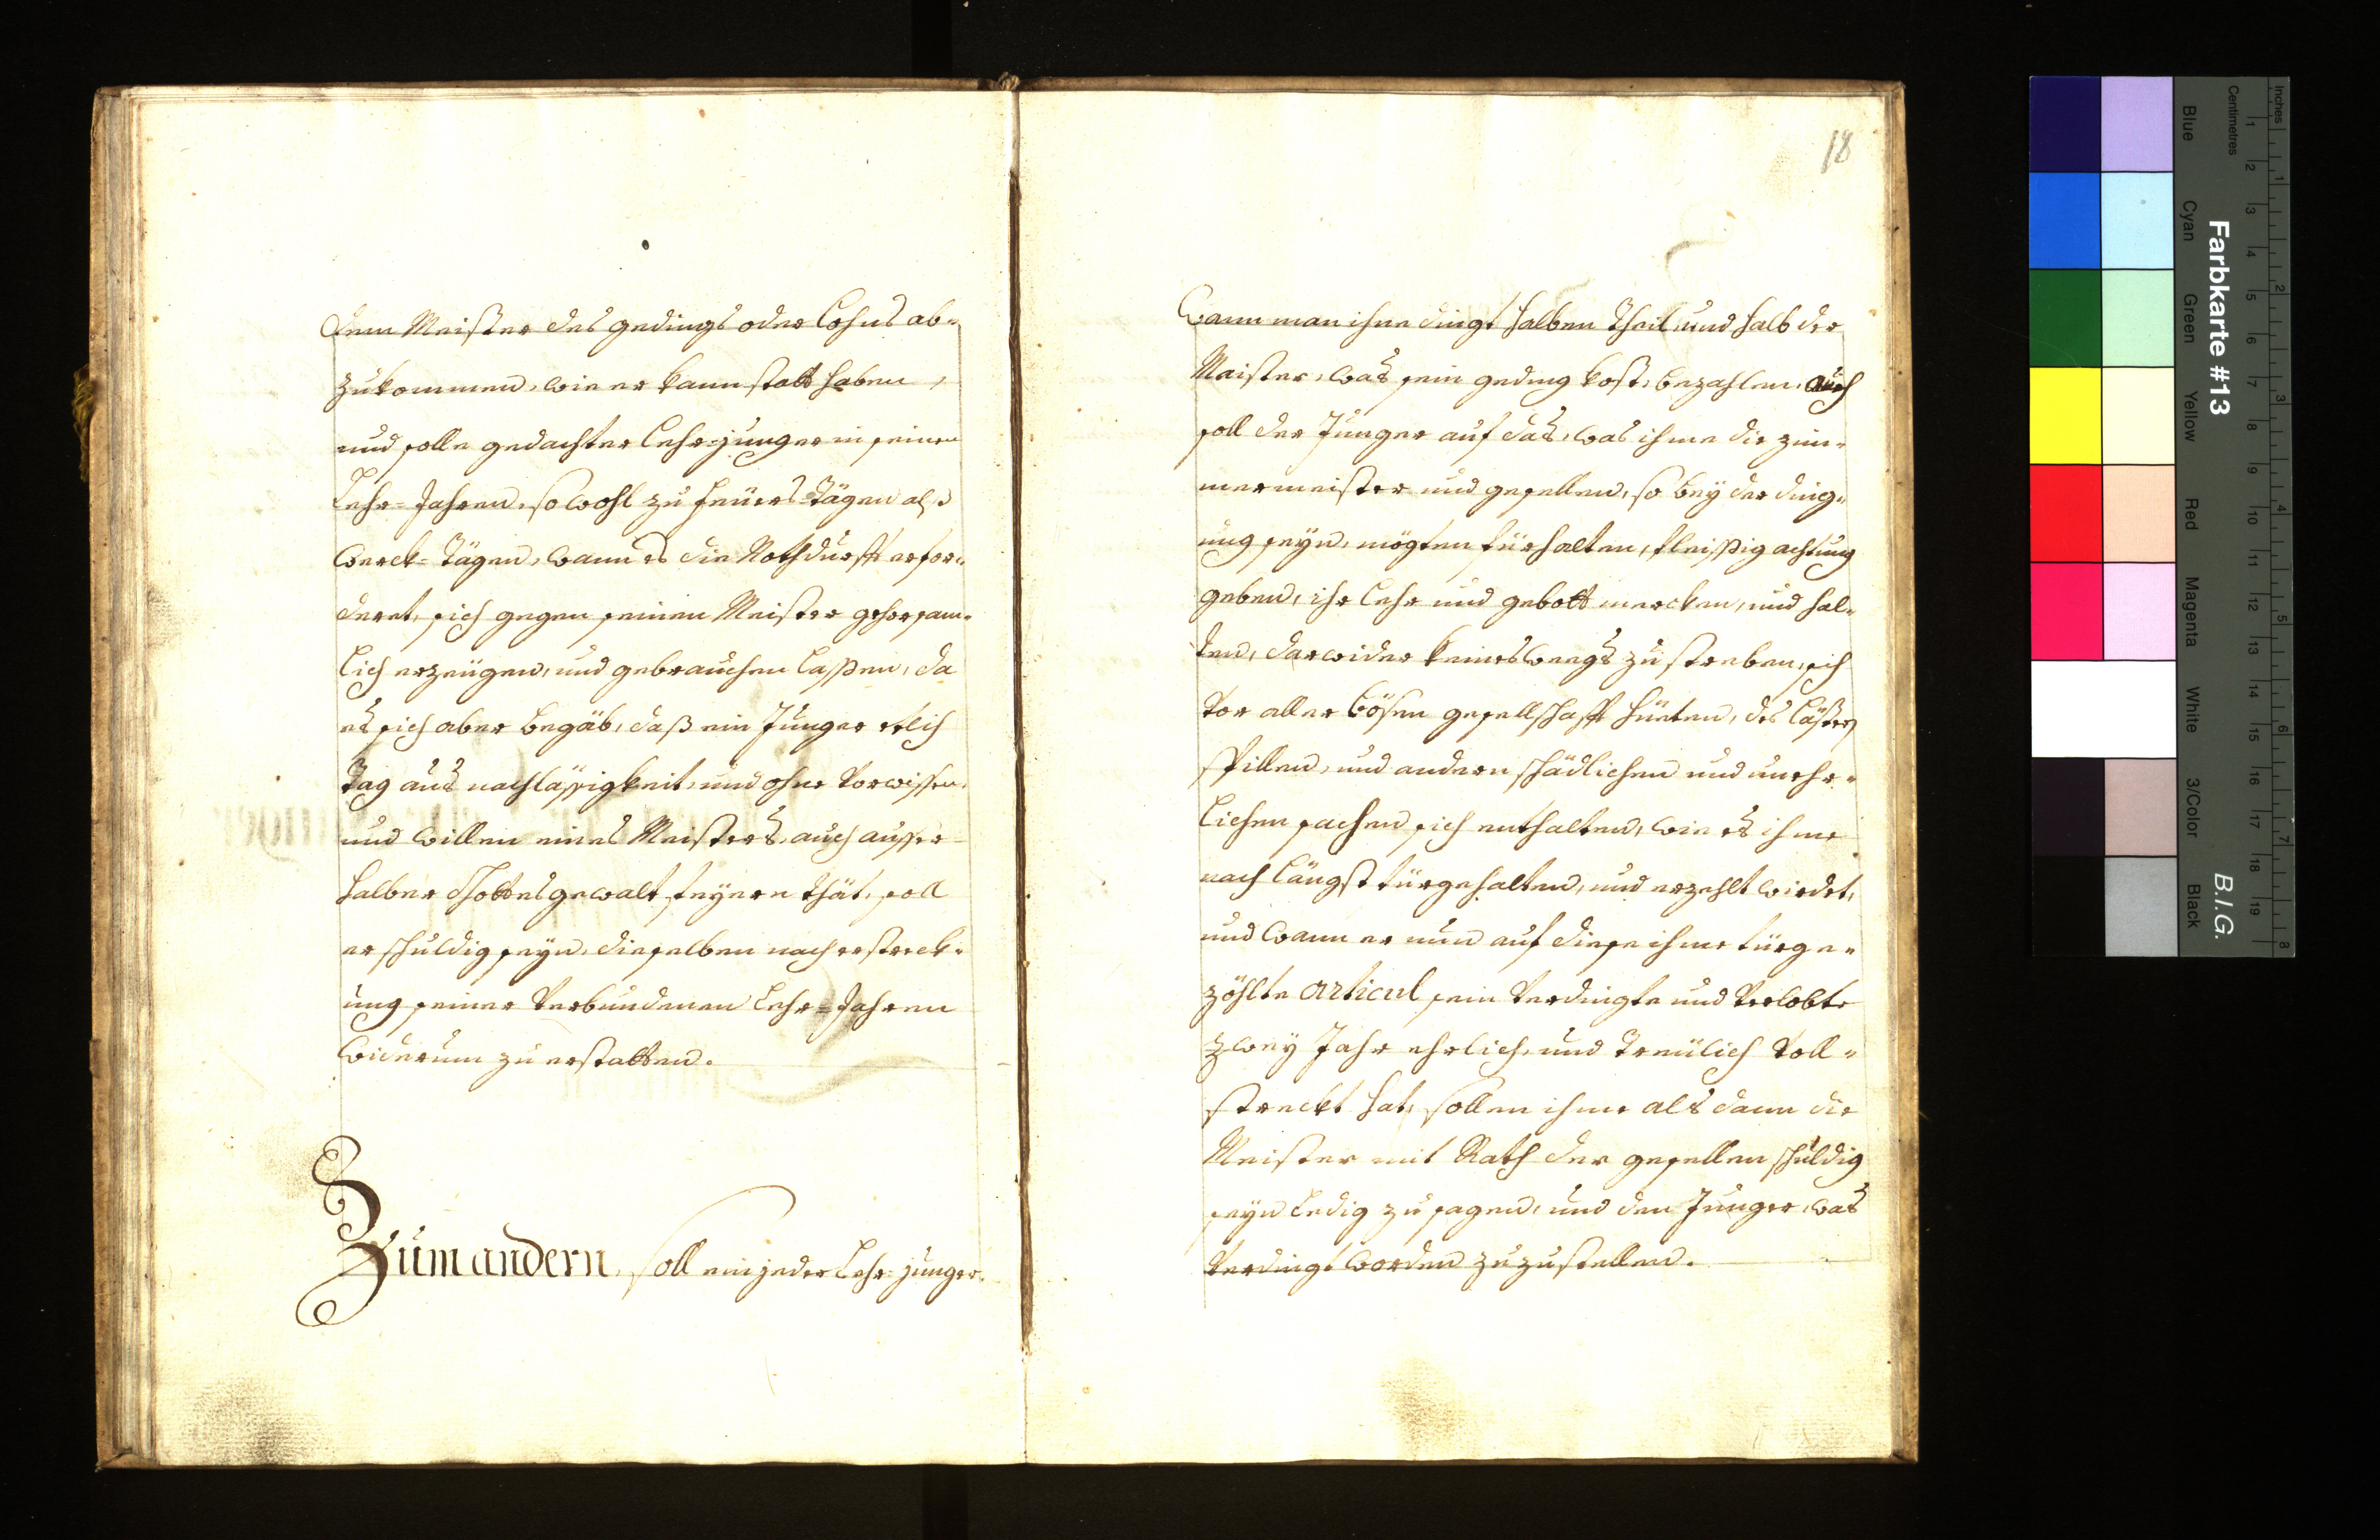 dem Meister des gedings oder Lohns ab-
zukommen, wie er kann statt haben,
und solle gedachter Lehr-junger in seinen
Lehr-Jahren, so wohl zu Feürs-Tägen alß
Werck-Tägen, wann es die Nothdurfft erfor-
deret, sich gegen seinen Meister gehorsam-
lich erzeügen, und gebrauchen laßen, da
es sich aber begäb, daß ein Junger etlich
Tag aus nachläßigkeit, und ohne Vorwissen,
und willen eines Meisters, auch ausser-
halber Gottesgewalt feyern thät, soll
er schuldig seyn, dieselben nach erstreck-
ung seiner Verbundenen Lehr-Jahren
widerum zu erstatten.
Zum andern, soll ein jeder Lehr-junger,
18
Wann man ihne dingt halben Theil, und halb der
Maister, was sein geding kost, bezahlen, auch
soll der Junger auf das, was ihme die zim-
mermeister und gesellen, so bey der ding-
ung seyn, mögten fürhalten, fleißig achtung
geben, ihr Lehr und gebott mercken, und hal-
ten, darwider keineswegs zu streben, sich
vor aller bösen gesellschafft hüeten, des lästers
spillen, und andern schädlichen und unehr-
lichen sachen sich enthalten, wie es ihme
nach längst fürgehalten, und erzehlt wirdet,
und wann er nun auf diese ihme fürge-
zöhlte Articul sein Verdingte und Verlobte
zwey Jahr ehrlich, und treülich voll-
streckt hat, sollen ihme als dann die
Meister mit Rath der gesellen schuldig
seyn ledig zu sagen, und den Junger, was
Verdingt worden zuzustellen.
Farbkarte #13
B.I.G.
Inches
Centimetres
1 2 3 4 5 6 7 8
1 2 3 4 5 6 7 8 9 10 11 12 13 14 15 16 17 18 19
Blue
Cyan
Green
Yellow
Red
Magenta
White
3/Color
Black